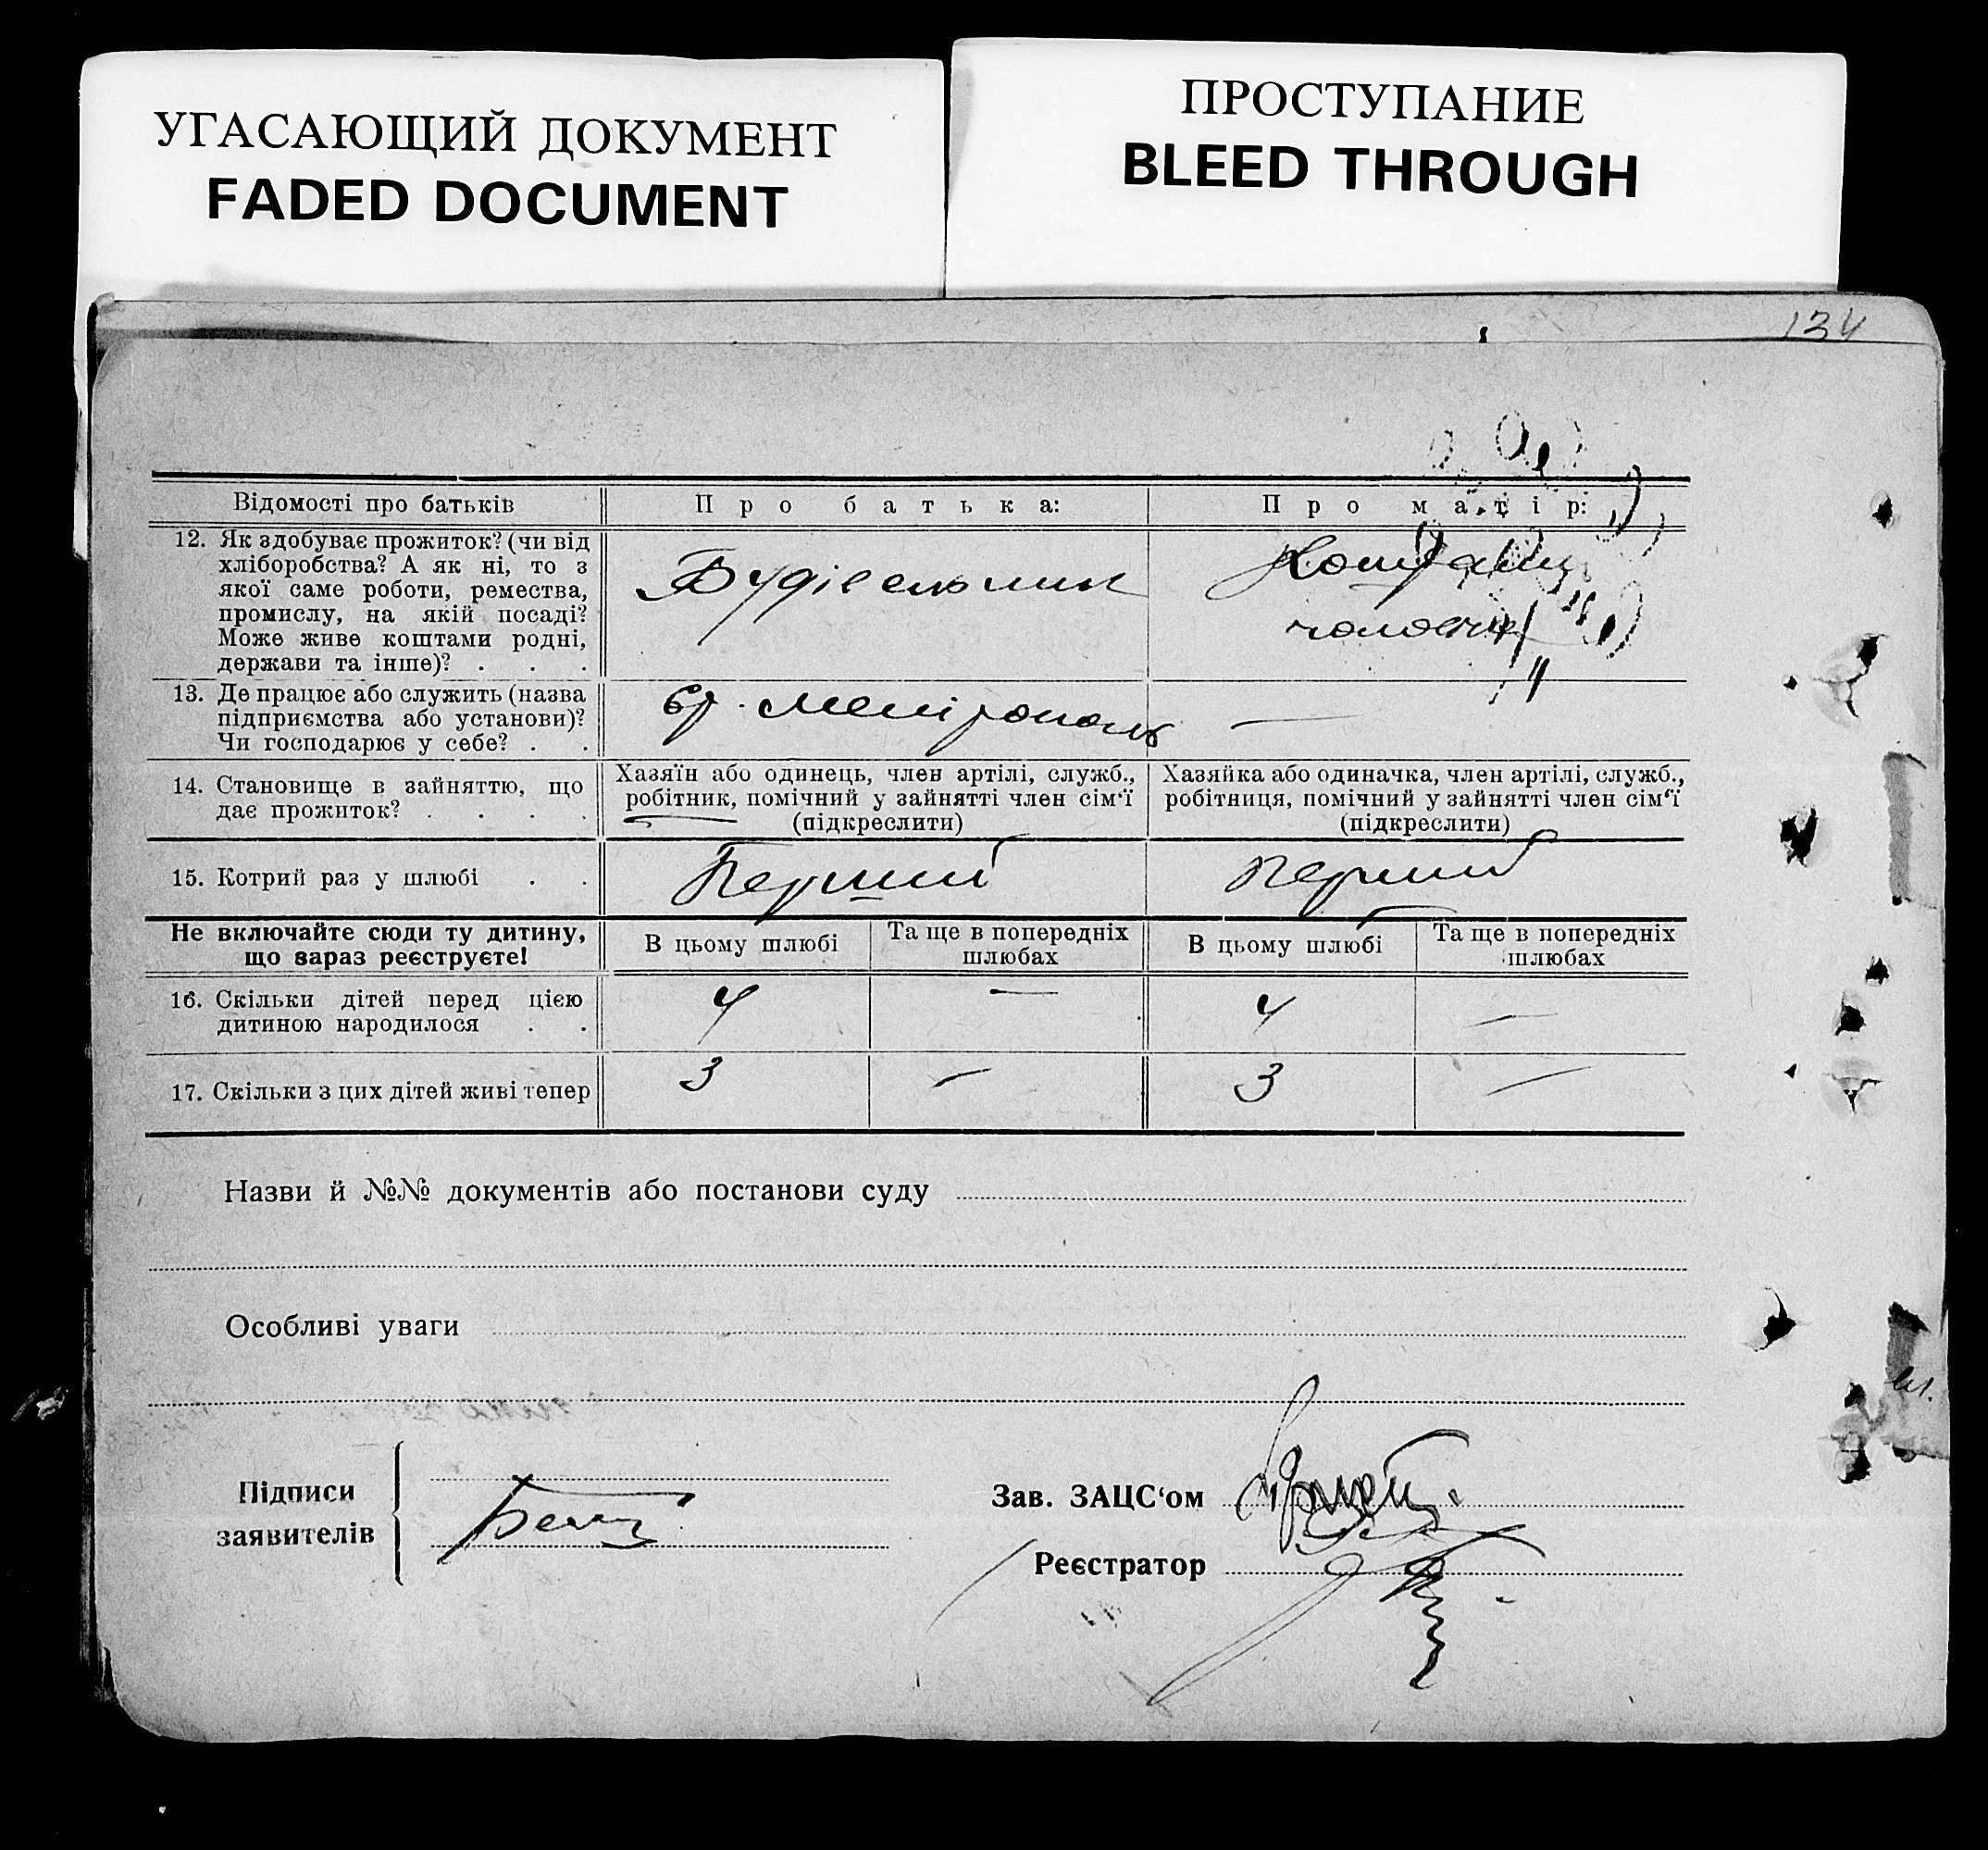 УГАСАЮЩИЙ ДОКУМЕНТ
FADED DOCUMENT
ПРОСТУПАНИЕ
BLEED THROUGH
134
Відомості про батьків
Про батька:
Про матір:
12. Як здобуває прожиток? (чи від
хліборобства? А як ні, то з
якої саме роботи, ремества,
промислу, на якій посаді?
Може живе коштами родні,
держави та інше)? . . .
Будівельник
Коштами
чоловіка
13. Де працює або служить (назва
підприємства або установи)?
Чи господарює у себе? . .
—
14. Становище в зайняттю, що
дає прожиток? . . . .
Хазяїн або одинець, член артілі, служб.,
робітник, помічний у зайнятті член сім‘ї
(підкреслити)
Хазяйка або одиначка, член артілі, служб.,
робітниця, помічний у зайнятті член сім‘ї
(підкреслити)
15. Котрий раз у шлюбі . .
Перший
перший
Не включайте сюди ту дитину,
що зараз реєструєте!
В цьому шлюбі
Та ще в попередніх
шлюбах
В цьому шлюбі
Та ще в попередніх
шлюбах
16. Скільки дітей перед цією
дитиною народилося . .
4
—
4
—
17. Скільки з цих дітей живі тепер
3
—
3
—
Назви й №№ документів або постанови суду
Особливі уваги
Підписи
заявителів
Зав. ЗАЦС‘ом
Реєстратор